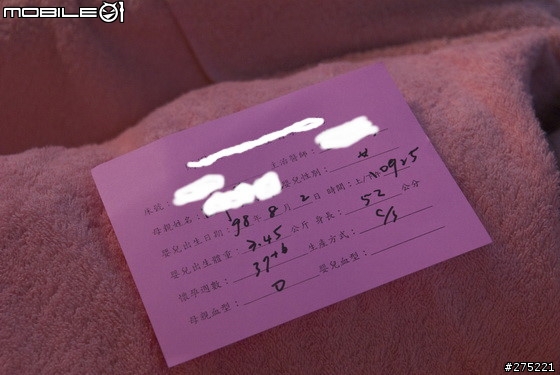 MOBILE01
主治醫師：
床號：
嬰兒性別：
母親姓名：
嬰兒出生日期：98年8月2日 時間：上/下0925
嬰兒出生體重：3.45公斤 身長：52公分
懷孕週數：37+6 生產方式：C/S
母親血型：O 嬰兒血型：
#275221